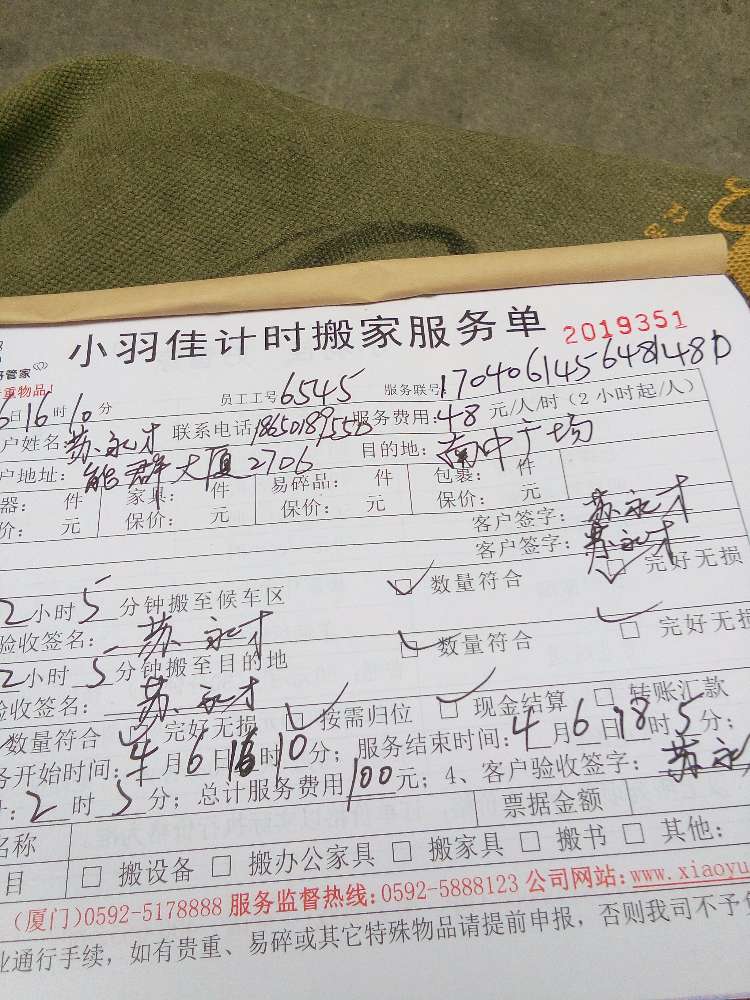 小羽佳计时搬家服务单 2019351
管家
重物品！
员工工号6545 服务联号:170406145648148D
6日16时10分
户姓名 苏永才 联系电话 服务费用:48 元/人/时（2小时起/人）
户地址: 能群大厦2706 目的地: 南中广场
器: 件 家具: 件 易碎品: 件 包裹: 件
价: 元 保价: 元 保价: 元 保价: 元
客户签字: 苏永才
客户签字: 苏永才
2小时5分钟搬至候车区 数量符合 完好无损
验收签名: 苏永才
2小时5分钟搬至目的地 数量符合 完好无损
收签名: 苏永才
数量符合 完好无损 按需归位 现金结算 转账汇款
务开始时间:4月6日16时10分；服务结束时间:4月6日18时5分；
:2时5分；总计服务费用100元；4、客户验收签字: 苏永才
名称 票据金额
目 □搬设备 □搬办公家具 □搬家具 □搬书 □其他:
(厦门)0592-5178888 服务监督热线:0592-5888123 公司网站:www.xiaoyu
业通行手续，如有贵重、易碎或其它特殊物品请提前申报，否则我司不予